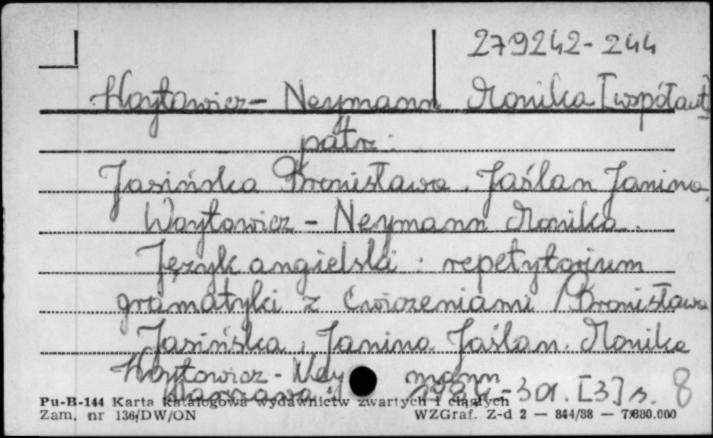 279242-244
Woytowicz - Neymann Monika [współaut.]
patrz:
Jasińska Bronisława. Jaślan Janina,
Woytowicz - Neymann Monika.
Język angielski : repetytorium
gramatyki z ćwiczeniami / Bronisława
Jasińska, Janina Jaślan. Monika
Woytowicz - Ney mann
Warszawa - 301. [3] s. 8
Pu-B-144 Karta katalogowa wydawnictw zwartych i ciągłych
Zam. nr 136/DW/ON WZGraf. Z-d 2 — 844/88 — 7.880.000